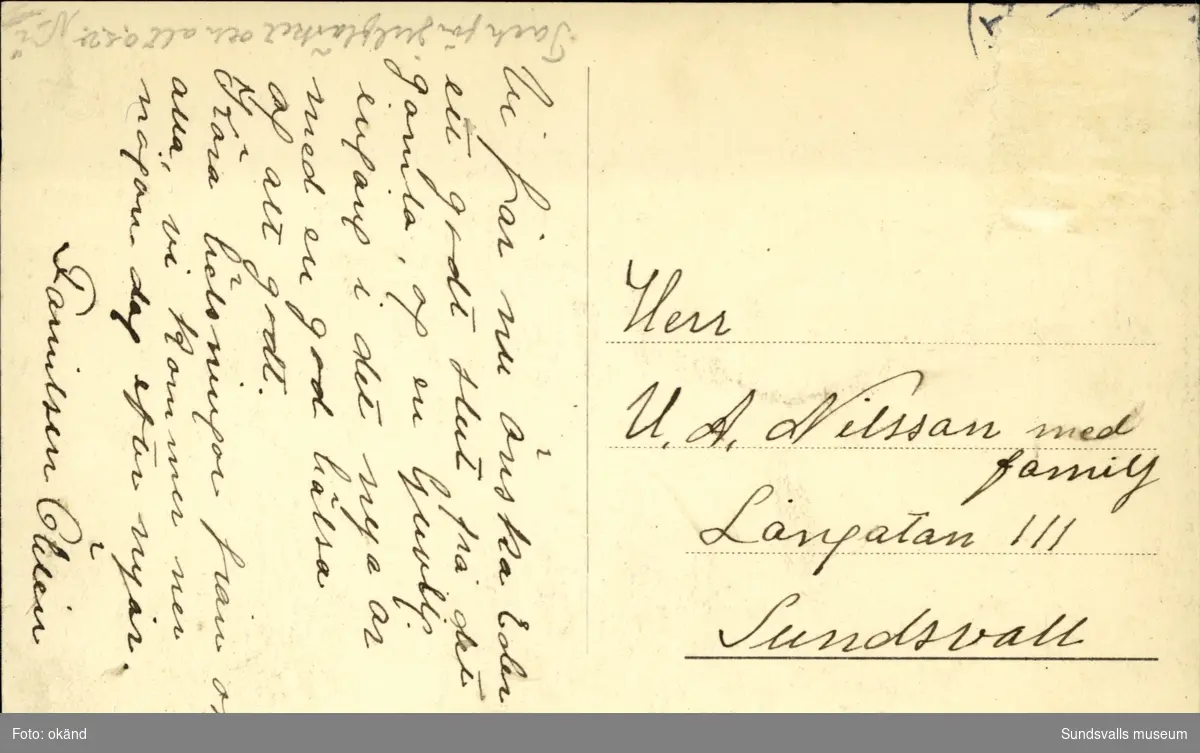 Tack för julplanket och allt och
Vi får nu önska Eder
ett godt slut på det
gamla, og en ljuvlig.
ingang i det nya år
med en god hälsa
og alt godt.
Kjära hälsningar från os
alla, vi kommer ner
någon dag efter nyår.
Familjen Olsén
Herr
U. A. Nilsson med
familj
Långatan 111
Sundsvall
Foto: okänd
Sundsvalls museum